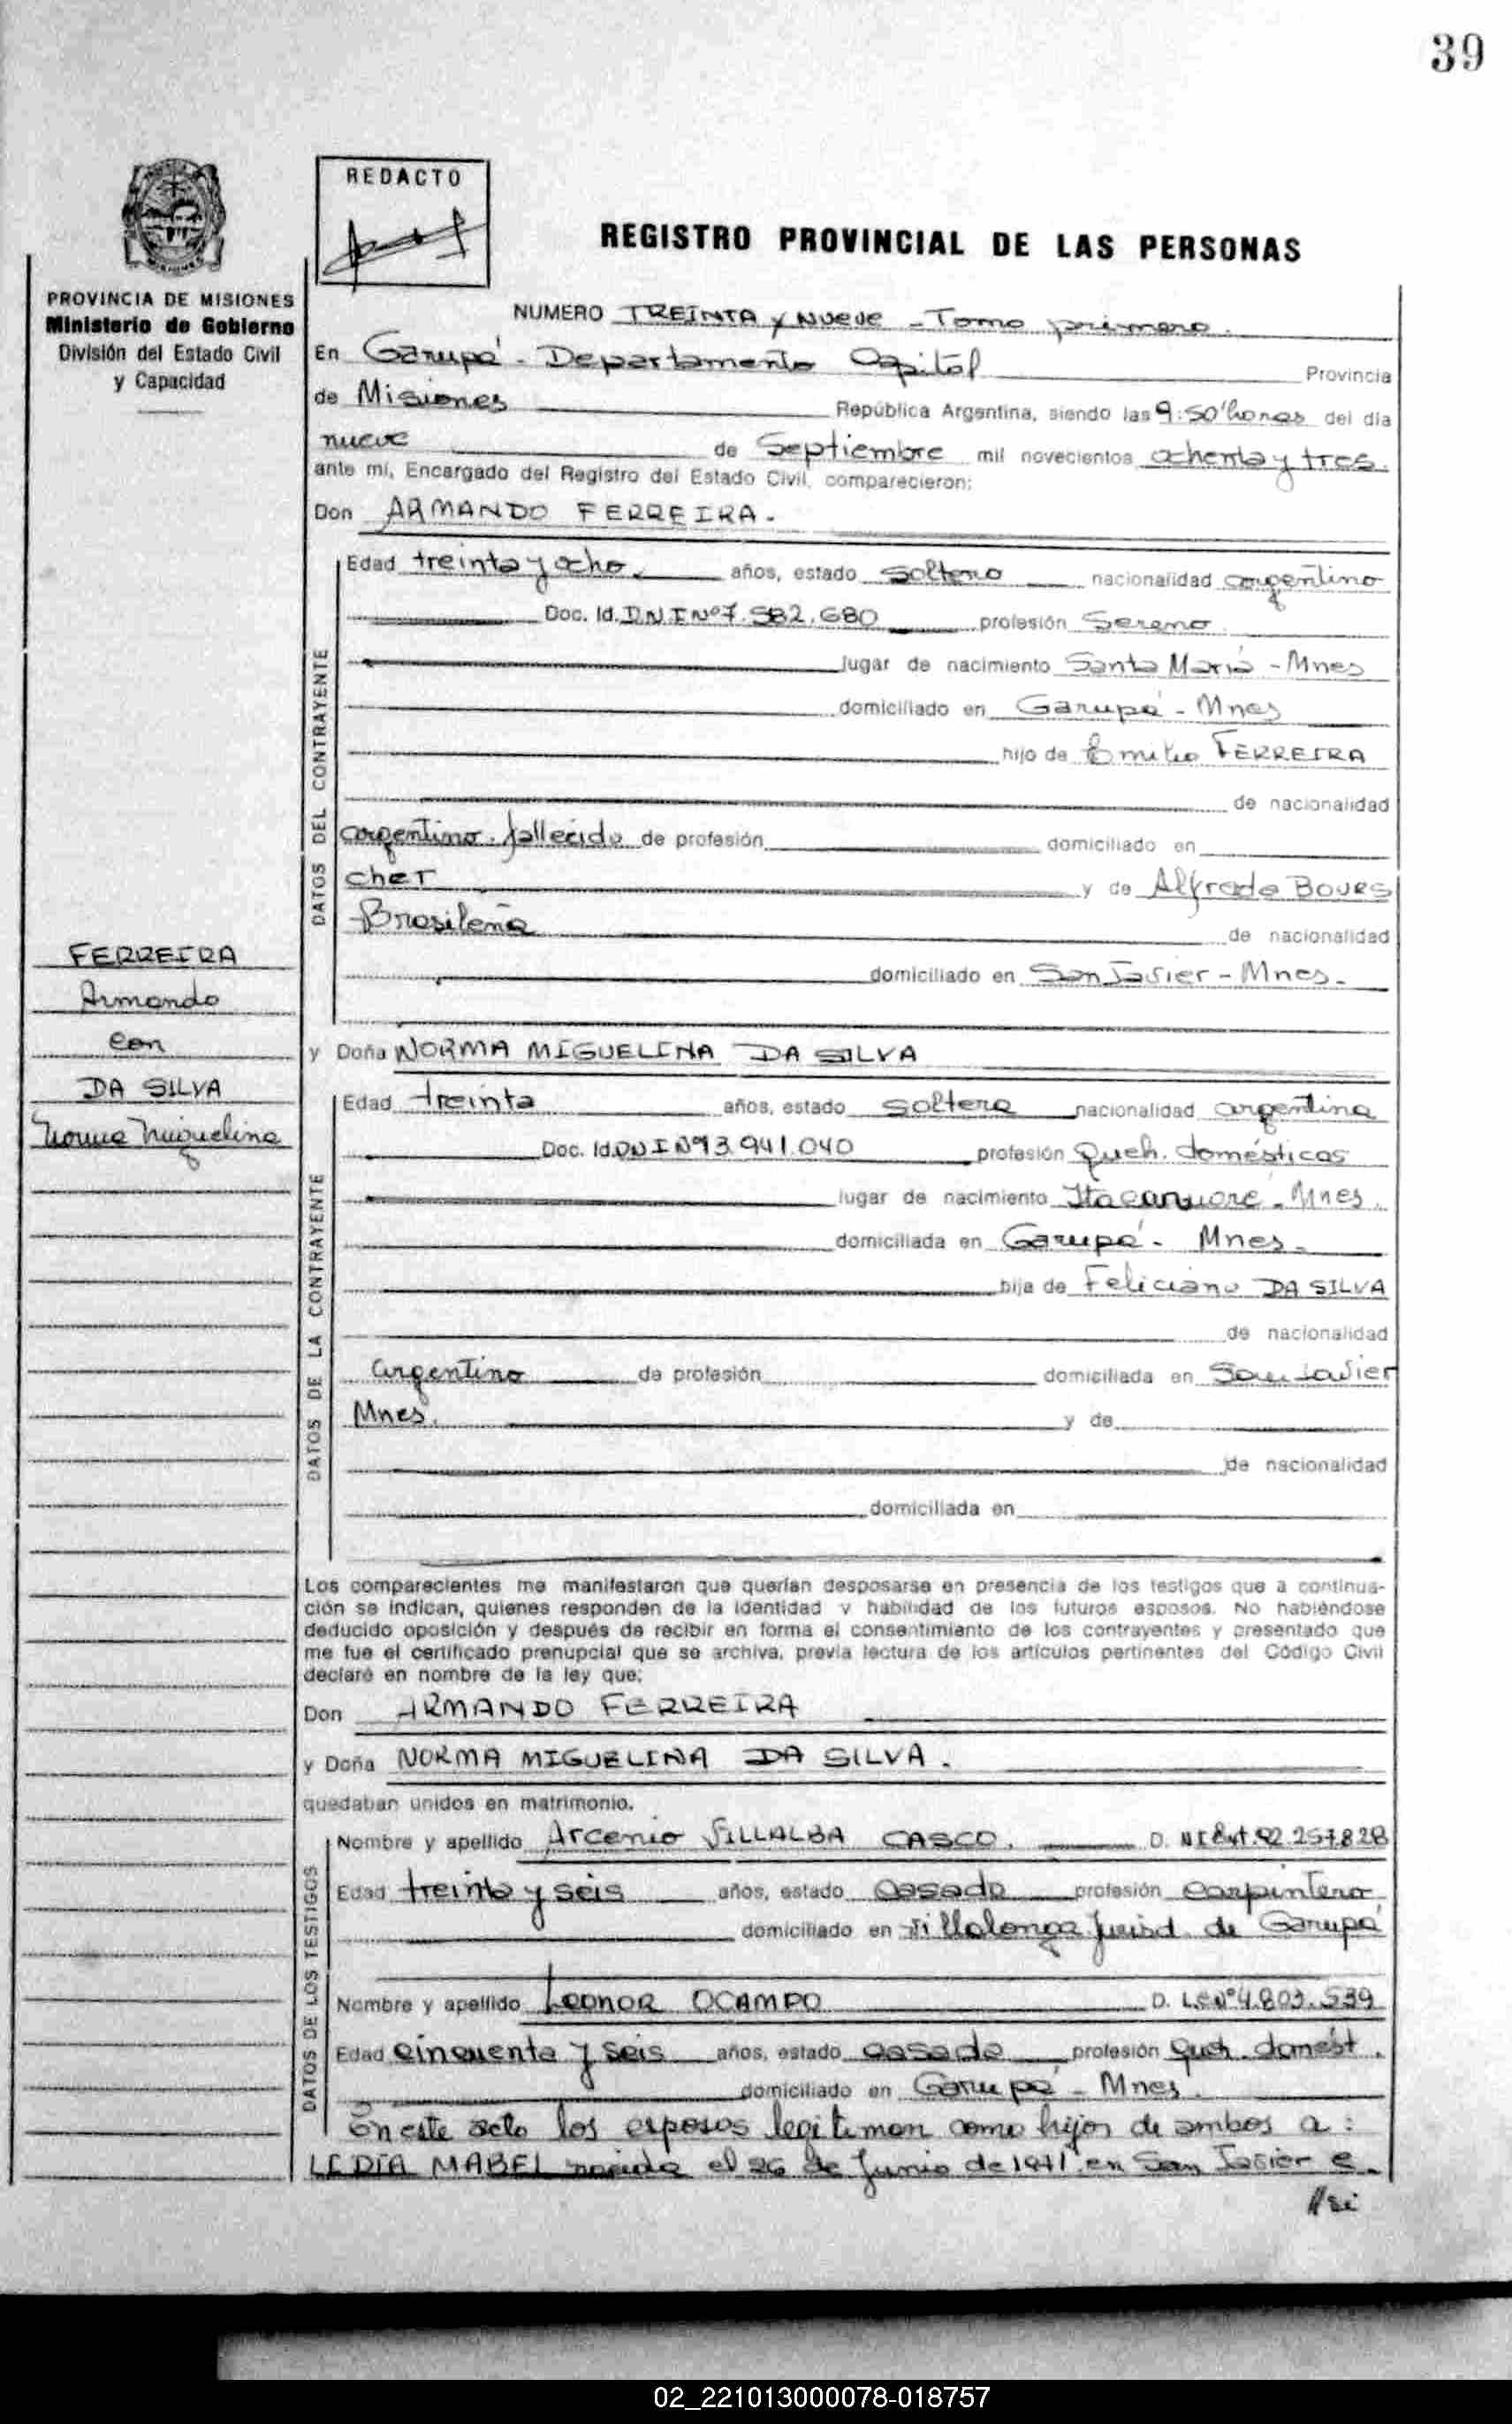 39
REDACTO
REGISTRO PROVINCIAL DE LAS PERSONAS
PROVINCIA DE MISIONES
Ministerio de Gobierno
División del Estado Civil
y Capacidad
NUMERO TREINTA y NUEVE - Tomo primero.
En Garupá - Departamento Capital Provincia
de Misiones República Argentina, siendo las 9:50 horas del día
nueve de Septiembre mil novecientos ochenta y tres.
ante mí, Encargado del Registro del Estado Civil, comparecieron:
Don ARMANDO FERREIRA.
DATOS DEL CONTRAYENTE
Edad treinta y ocho años, estado soltero nacionalidad argentino
Doc. Id. D.N.I Nº 7.582.680 profesión Sereno
lugar de nacimiento Santa María - Mnes
domiciliado en Garupá - Mnes
hijo de Emilio FERREIRA
de nacionalidad
argentino. fallecido de profesión domiciliado en
y de Alfreda
Brasileña de nacionalidad
domiciliado en San Javier - Mnes.
FERREIRA
Armando
con
DA SILVA
Norma Miguelina
y Doña NORMA MIGUELINA DA SILVA
DATOS DE LA CONTRAYENTE
Edad treinta años, estado soltera nacionalidad argentina
Doc. Id. DNI Nº 13.941.040 profesión Queh. domésticos
lugar de nacimiento Itacaruaré - Mnes.
domiciliada en Garupá - Mnes.
hija de Feliciano DA SILVA
de nacionalidad
argentino de profesión domiciliada en San Javier
Mnes. y de
de nacionalidad
domiciliada en
Los comparecientes me manifestaron que querían desposarse en presencia de los testigos que a continua-
ción se indican, quienes responden de la identidad y habilidad de los futuros esposos. No habiéndose
deducido oposición y después de recibir en forma el consentimiento de los contrayentes y presentado que
me fue el certificado prenupcial que se archiva, previa lectura de los artículos pertinentes del Código Civil
declaré en nombre de la ley que:
Don ARMANDO FERREIRA
y Doña NORMA MIGUELINA DA SILVA.
quedaban unidos en matrimonio.
DATOS DE LOS TESTIGOS
Nombre y apellido Arcenio VILLALBA CASCO. D. NI Ext. 92.257.828
Edad treinta y seis años, estado casado profesión carpintero
domiciliado en Villalonga Jurisd. de Garupá
Nombre y apellido Leonor OCAMPO D. LC Nº 4.803.539
Edad cincuenta y seis años, estado casada profesión Queh. domést.
domiciliado en Garupá - Mnes.
En este acto los esposos legitiman como hijos de ambos a:
LEDIA MABEL nacida el 26 de Junio de 1971 en San Javier e
//si
02_221013000078-018757